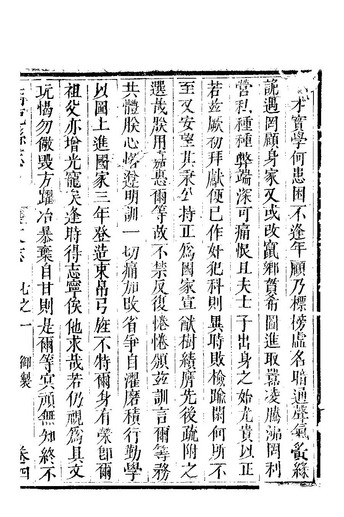 才實學何患困不逢年顧乃標榜虛名暗通聲氣夤緣
詭遇罔顧身家又或改竄鄉貫希圖進取囂凌騰沸罔利
營私種種弊端深可痛恨且夫士子出身之始尤貴以正
若茲厥初拜獻便已作奸犯科則異時敗檢踰閑何所不
至又安望其秉公持正爲國家宣猷樹績膺先後疏附之
選哉朕用嘉惠爾等故不禁反復惓惓頒茲訓言爾等務
共體朕心恪遵明訓一切痛加改省爭自濯磨積行勤學
以圖上進國家三年登造束帛弓旌不特爾身有榮卽爾
祖父亦增光寵矣逢時得志寧俟他求哉若仍視爲具文
玩愒勿儆毀方躍冶暴棄自甘則是爾等冥頑無知終不
七之一 御製 卷四